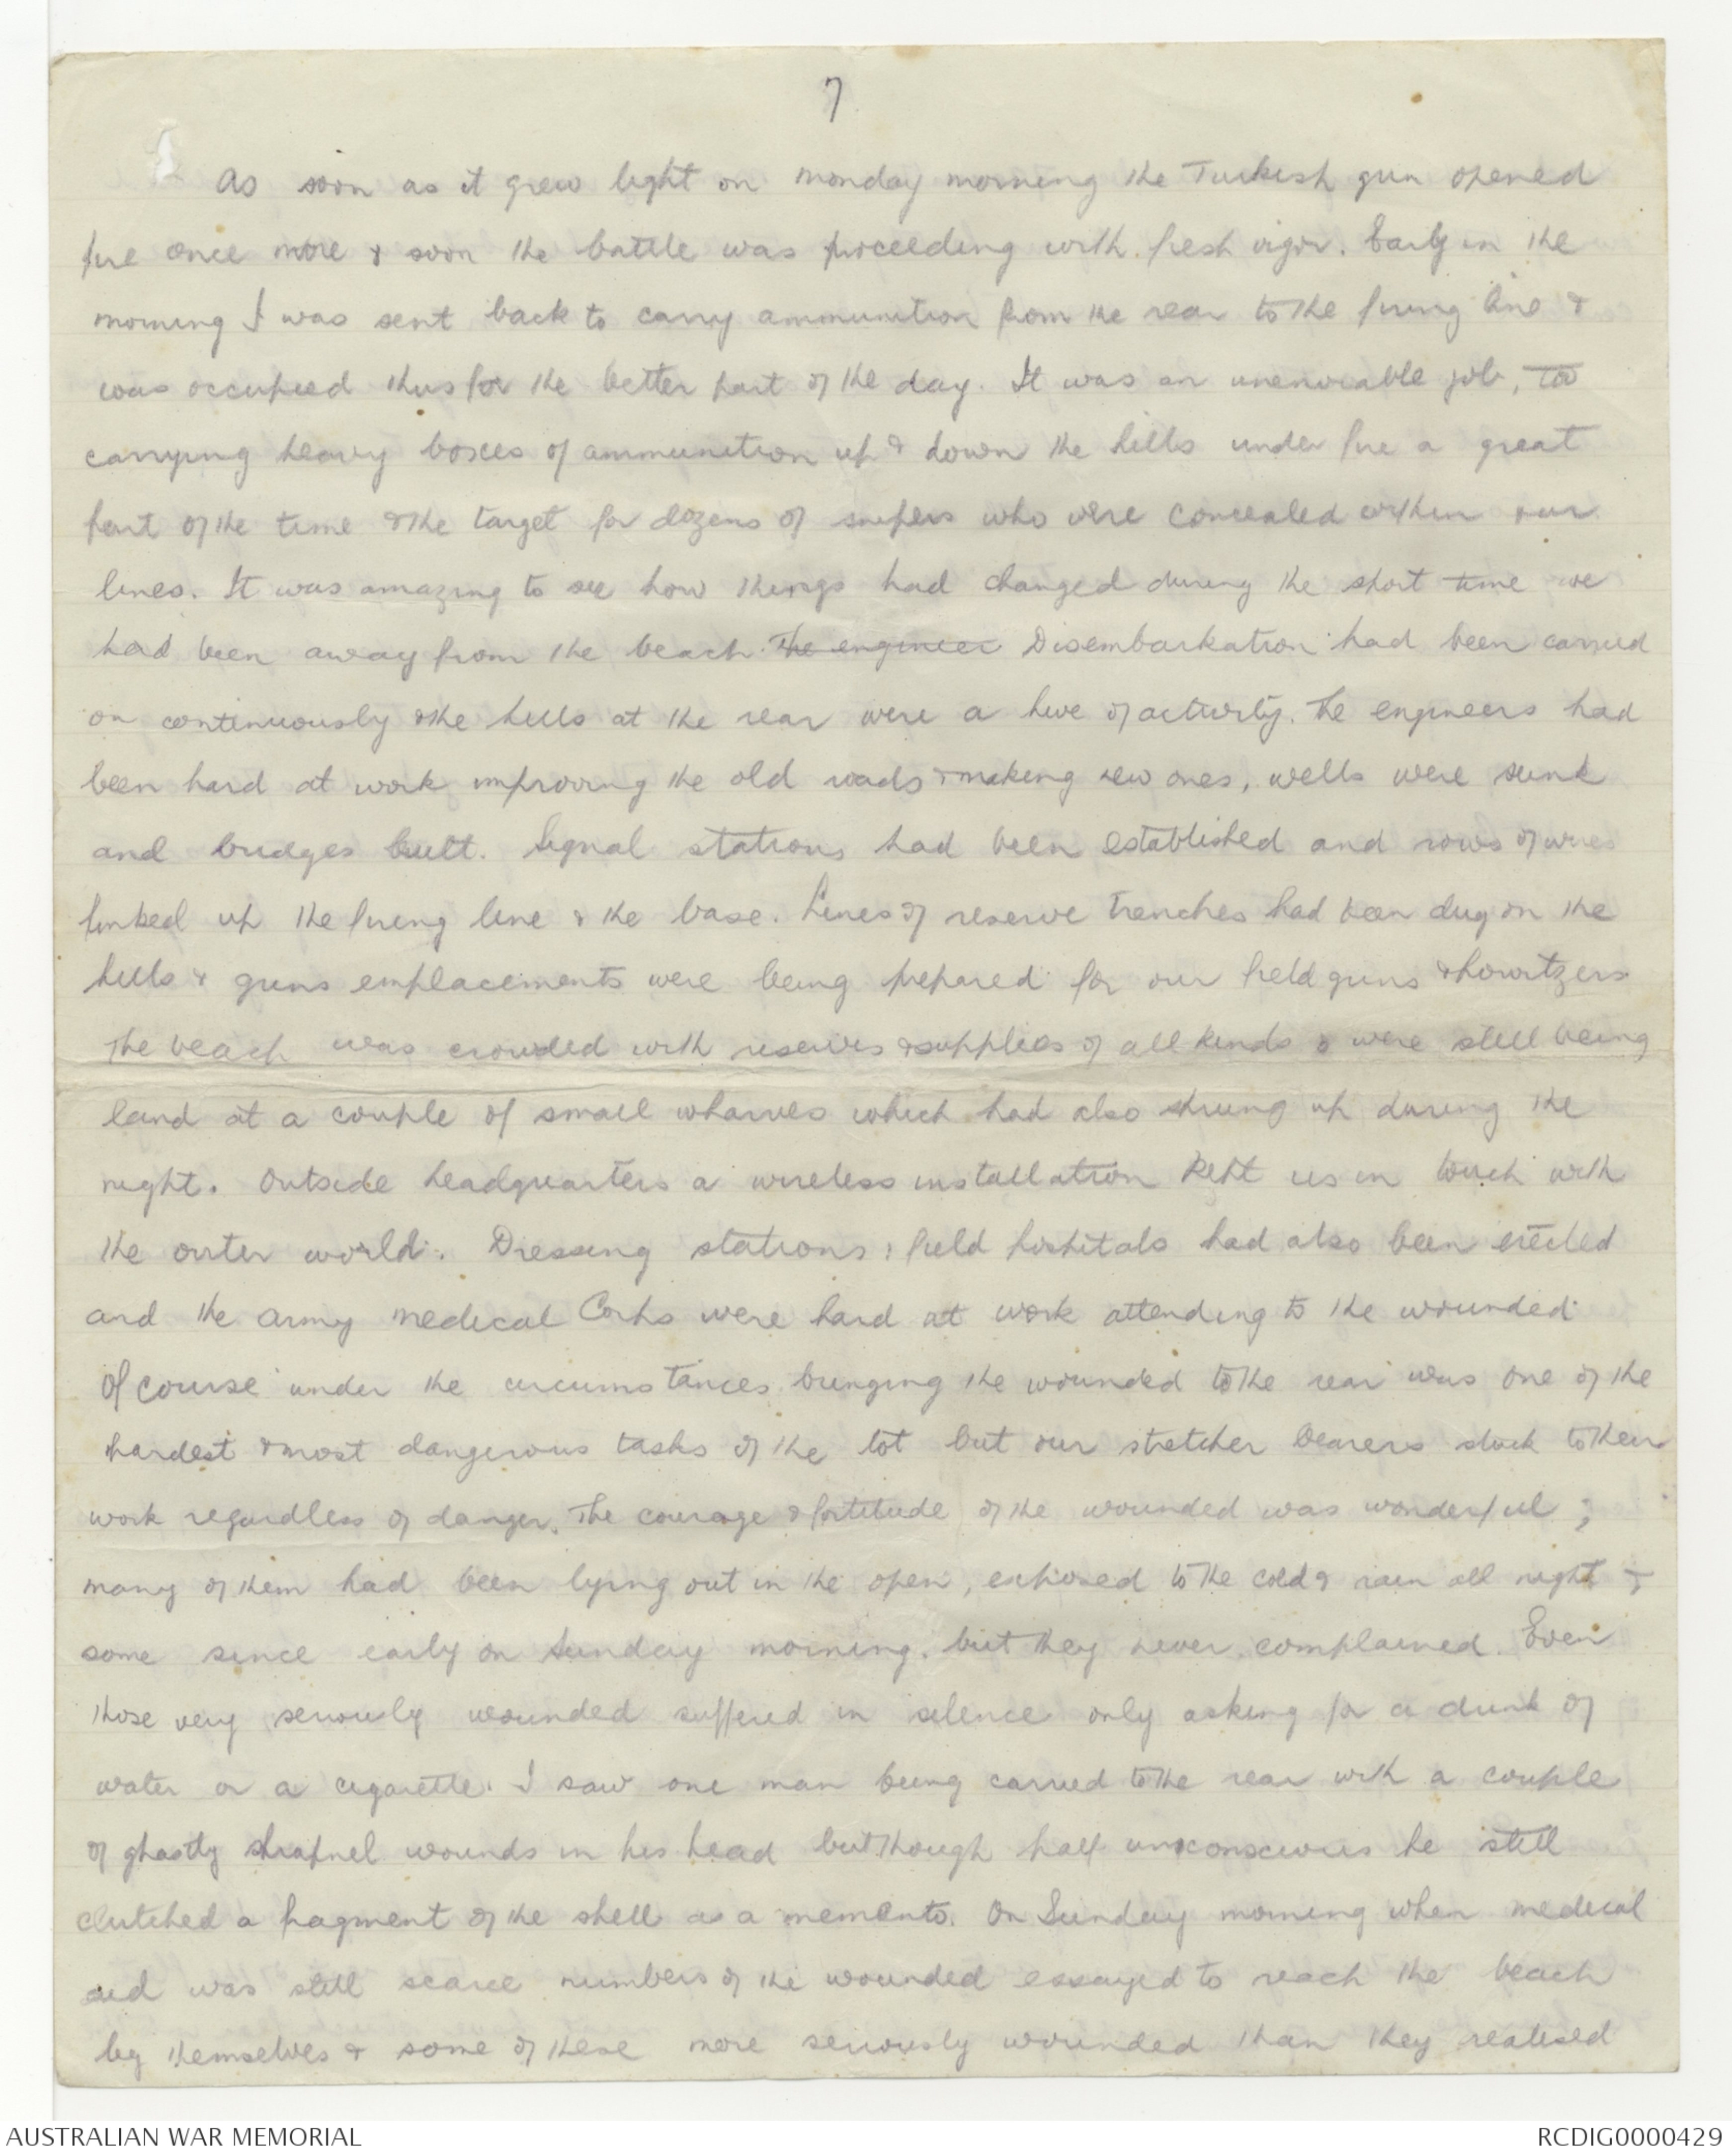 7
As soon as it grew light on Monday morning the Turkish gun opened
fire once more & soon the battle was proceeding with fresh vigor. Early in the
morning I was sent back to carry ammunition from the rear to the firing line &
was occupied thus for the better part of the day. It was an unenviable job, too
carrying heavy boxes of ammunition up & down the hills under fire a great
part of the time & the target for dozens of snipers who were concealed within our
lines. It was amazing to see how things had changed during the short time we
had been away from the beach. The engineer Disembarkation had been carried
on continuously & the hills at the rear were a hive of activity. The engineers had
been hard at work improving the old roads & making new ones, wells were sunk
and bridges built. Signal stations had been established and rows of wires
linked up the firing line & the base. Lines of reserve trenches had been dug on the
hills & guns emplacements were being prepared for our field guns & howitzers
The beach was crowded with reserves & supplies of all kinds & were still being
land at a couple of small wharves which had also sprung up during the
night. Outside headquarters a wireless installation kept us in touch with
the outer world. Dressing stations & field hospitals had also been erected
and the Army Medical Corps were hard at work attending to the wounded
Of course under the circumstances bringing the wounded to the rear was one of the
hardest & most dangerous tasks of the lot but our stretcher bearers stuck to their
work regardless of danger. The courage & fortitude of the wounded was wonderful;
many of them had been lying out in the open, exposed to the cold & rain all night &
some since early on Sunday morning, but they never complained. Even
those very seriously wounded suffered in silence only asking for a drink of
water or a cigarette. I saw one man being carried to the rear with a couple
of ghastly shrapnel wounds in his head but though half unconscious he still
clutched a fragment of the shell as a memento. On Sunday morning when medical
aid was still scarce numbers of the wounded essayed to reach the beach
by themselves & some of these more seriously wounded than they realised
AUSTRALIAN WAR MEMORIAL
RCDIG0000429